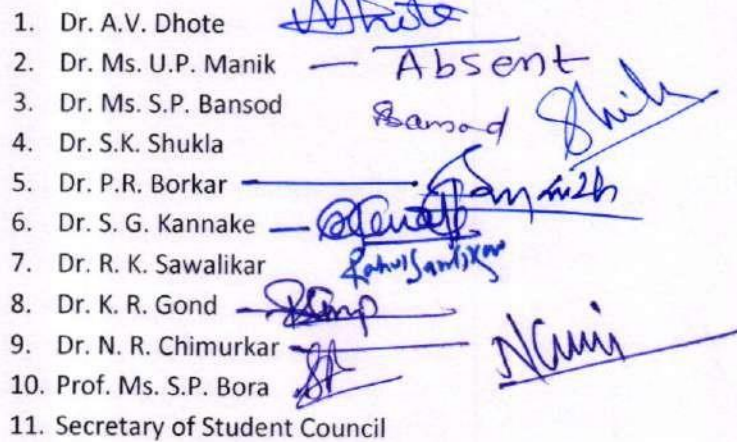 1. Dr. A.V. Dhote
2. Dr. Ms. U.P. Manik — Absent
3. Dr. Ms. S.P. Bansod Bansod
4. Dr. S.K. Shukla
5. Dr. P.R. Borkar
6. Dr. S. G. Kannake
7. Dr. R. K. Sawalikar
8. Dr. K. R. Gond
9. Dr. N. R. Chimurkar
10. Prof. Ms. S.P. Bora
11. Secretary of Student Council